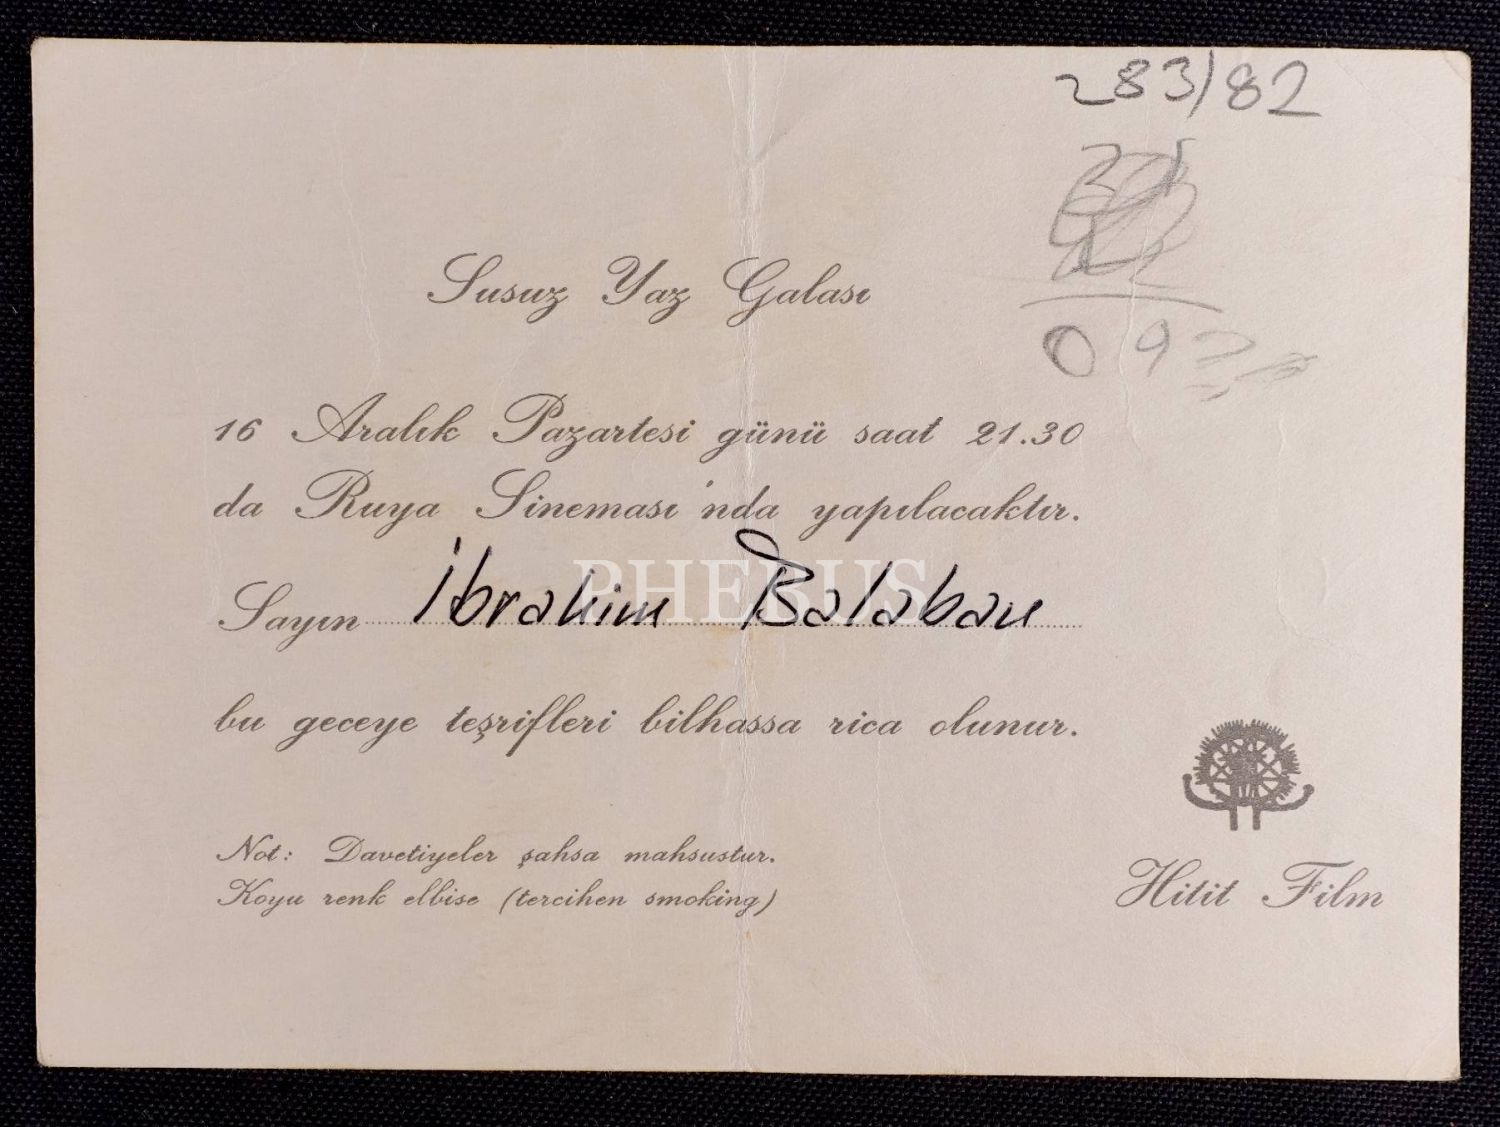 283/82
Susuz Yaz Galası
16 Aralık Pazartesi günü saat 21.30
da Ruya Sineması'nda yapılacaktır.
PHEBUS
Sayın İbrahim Balaban
bu geceye teşrifleri bilhassa rica olunur.
Not: Davetiyeler şahsa mahsustur.
Koyu renk elbise (tercihen smoking)
Hitit Film